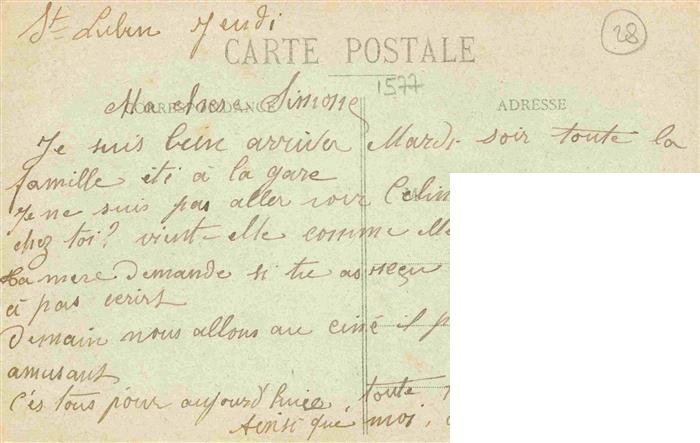 St Lubin Jeudi
28
CARTE POSTALE
1577
CORRESPONDANCE
ADRESSE
Ma chere Simone
Je suis bein arriver Mardi soir toute la
famille éti à la gare
Je ne suis pas aller voir Celin
chez toi? vient-elle comme elle
ta mere demande si tu as reçu
à pas ecrirt
Demain nous allons au ciné il p
amusant
c'és tous pour aujourd'huie, toute
Ainsi que moi,